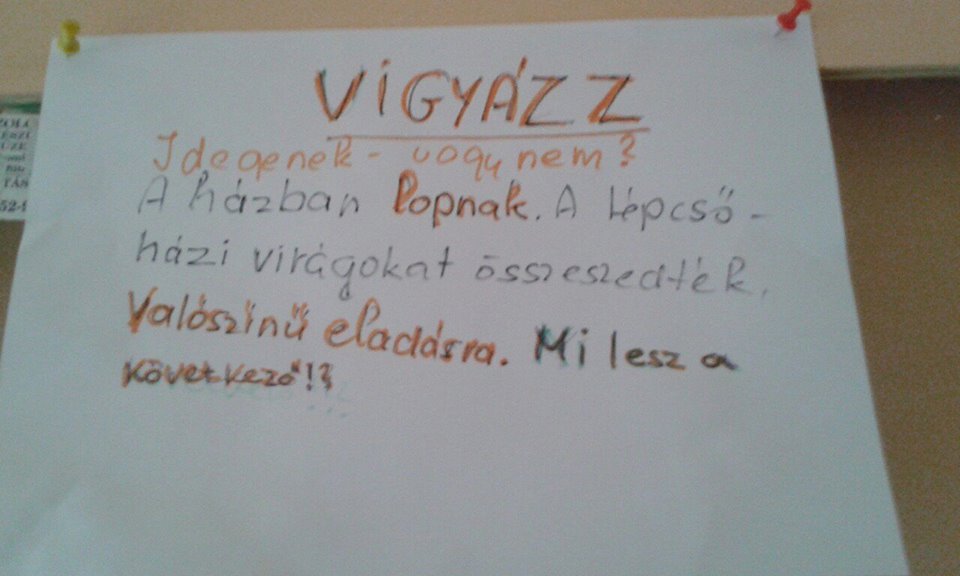 VIGYÁZZ
Idegenek - vagy nem?
A házban lopnak. A lépcső-
házi virágokat összeszedték.
Valószínű eladásra. Mi lesz a
következő!?
TÁS
52-1